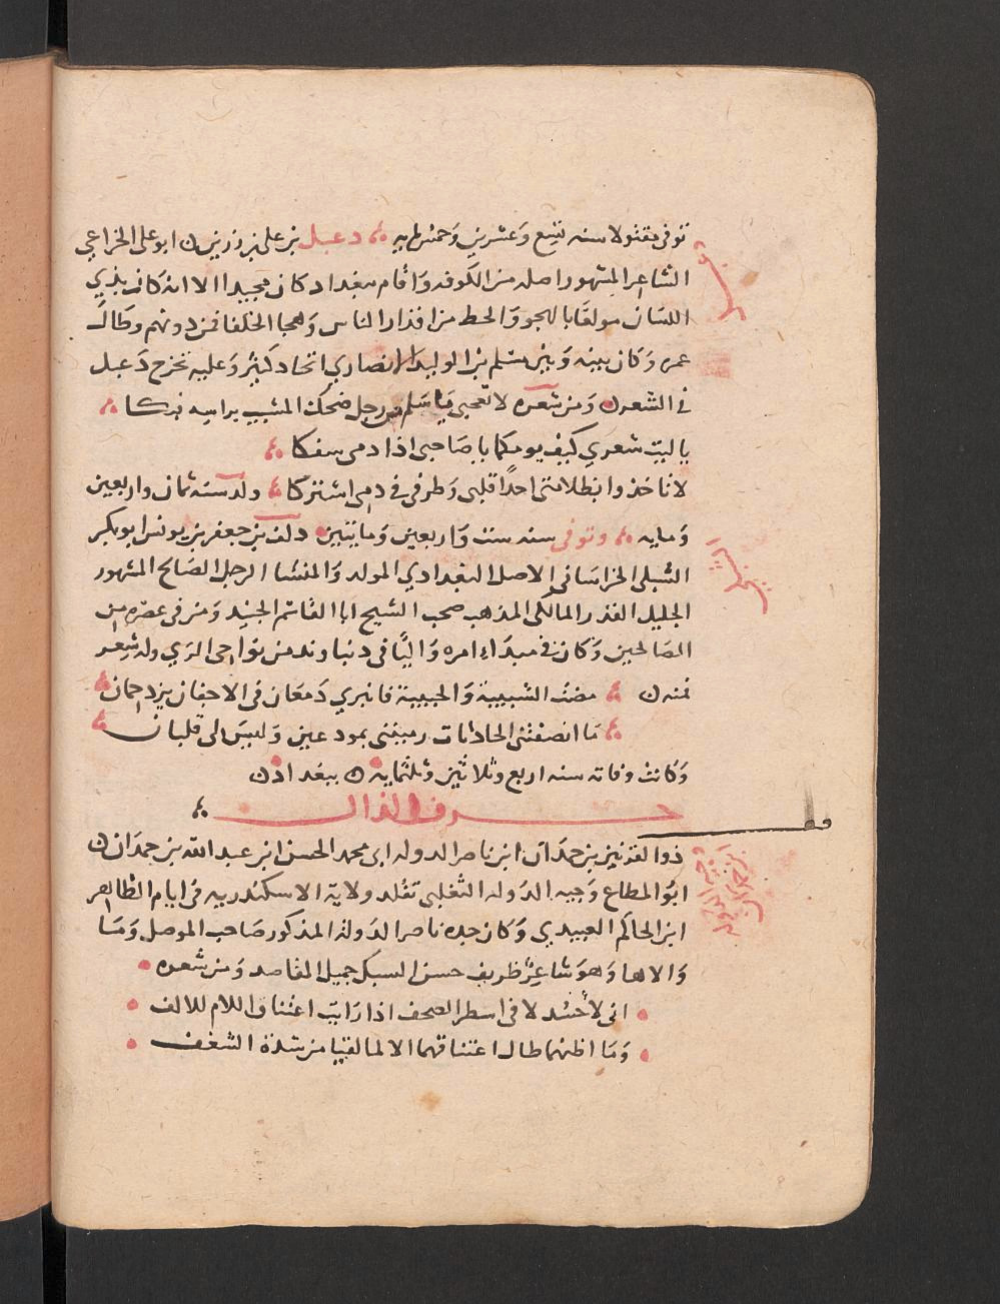 توفى مقتولا سنه تسع وعشرين وخمس مايه دعبل بن على بن رزين ابو على الخزاعي
الشاعر المشهور اصله من الكوفه واقام ببغداد كان مجيدا الا انه كان بذي
اللسان مولعا بالهجو والحط من اقدار الناس وهجا الخلفا فمن دونهم وطال
عمره وكان بينه وبين مسلم بن الوليد الانصاري اتحاد كثير وعليه تخرج دعبل
في الشعر ومن شعره لا تعجبي يا سلم من رجل ضحك المشيب براسه فبكا
يا ليت شعري كيف يومكما يا صاحبي اذا دمي سفكا
لا تاخذوا بظلامتي احدا قلبي وطرفي في دمي اشتركا ولد سنه ثمان واربعين
ومايه وتوفى سنه ست واربعين ومايتين دلف بن جعفر بن يونس ابو بكر
الشبلى الخراسانى الاصل البغدادي المولد والمنشا الرجل الصالح المشهور
الجليل القدر المالكى المذهب صحب الشيخ ابا القاسم الجنيد ومن فى عصره من
الصالحين وكان فى مبداء امره واليا فى دنباوند من نواحى الري وله شعر
فمنه مضت الشبيبة والحبيبة فانبري دمعان فى الاجفان يزدحمان
ما انصفتنى الحادثات رميننى بمودعين وليس لى قلبان
وكانت وفاته سنه اربع وثلاثين وثلثمايه ببغداد
حرف الذال
ذو القرنين بن حمدان ابن ناصر الدوله ابى محمد الحسن ابن عبد الله بن حمدان
ابو المطاع وجيه الدوله التغلبى تقلد ولاية الاسكندريه فى ايام الظاهر
ابن الحاكم العبيدي وكان جده ناصر الدولة المذكور صاحب الموصل وما
والاها وهو شاعر ظريف حسن السبك جميل المقاصد ومن شعره
انى لاحسد لا فى اسطر الصحف اذا رايت اعتناق اللام للالف
وما اظنهما طال اعتناقهما الا لما لقيا من شدة الشغف